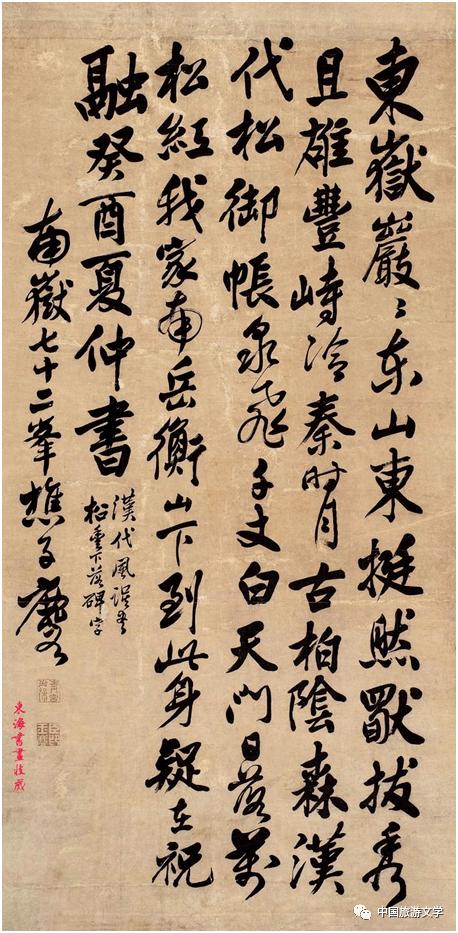 東嶽巖〻东山東挺然拔秀
且雄豐峙冷秦时月古柏陰森漢
代松御帳泉飛千丈白天門日落萬
松紅我家南岳衡山下到此身疑在祝
融癸酉夏仲書
漢代風誤書
松重下落碑字
南嶽七十二峯樵子
東海書畫收藏
中国旅游文学